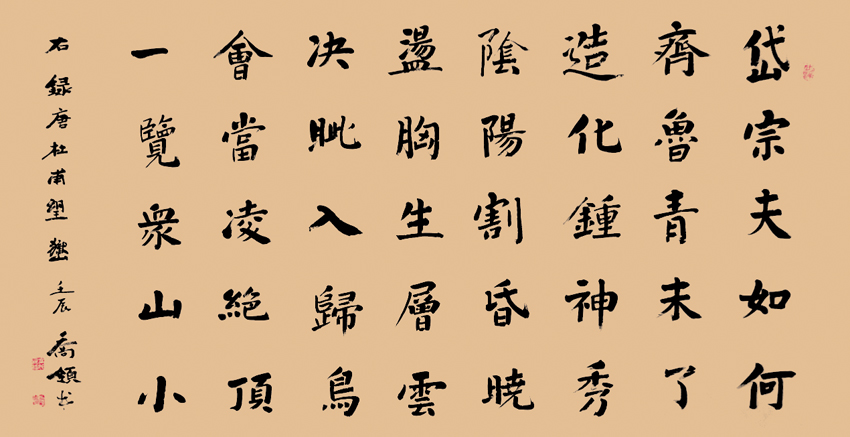 岱宗夫如何
齊魯青未了
造化鍾神秀
陰陽割昏曉
盪胸生層雲
决眦入歸鳥
會當凌絕頂
一覽衆山小
右錄唐杜甫望嶽壬辰喬領书